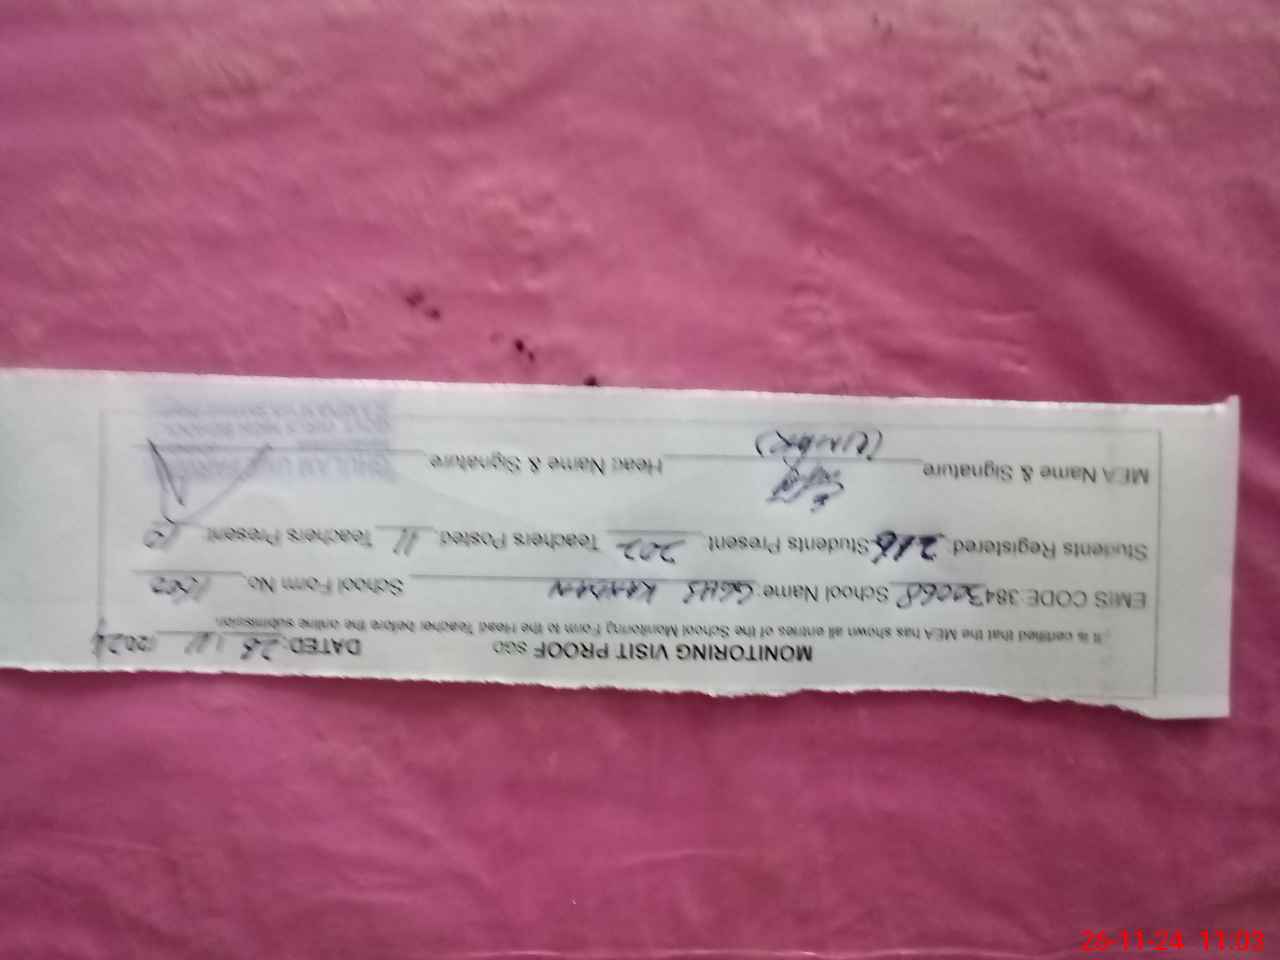 MONITORING VISIT PROOF SGD DATED: 26 / 11 /2024
It is certified that the MEA has shown all entries of the School Monitoring Form to the Head Teacher before the online submission.
EMIS CODE: 38430068 School Name: GGHS KANDAN School Form No. 1503
Students Registered: 216 Students Present: 202 Teachers Posted: 11 Teachers Present: 10
MEA Name & Signature Head Name & Signature
26-11-24 11:03